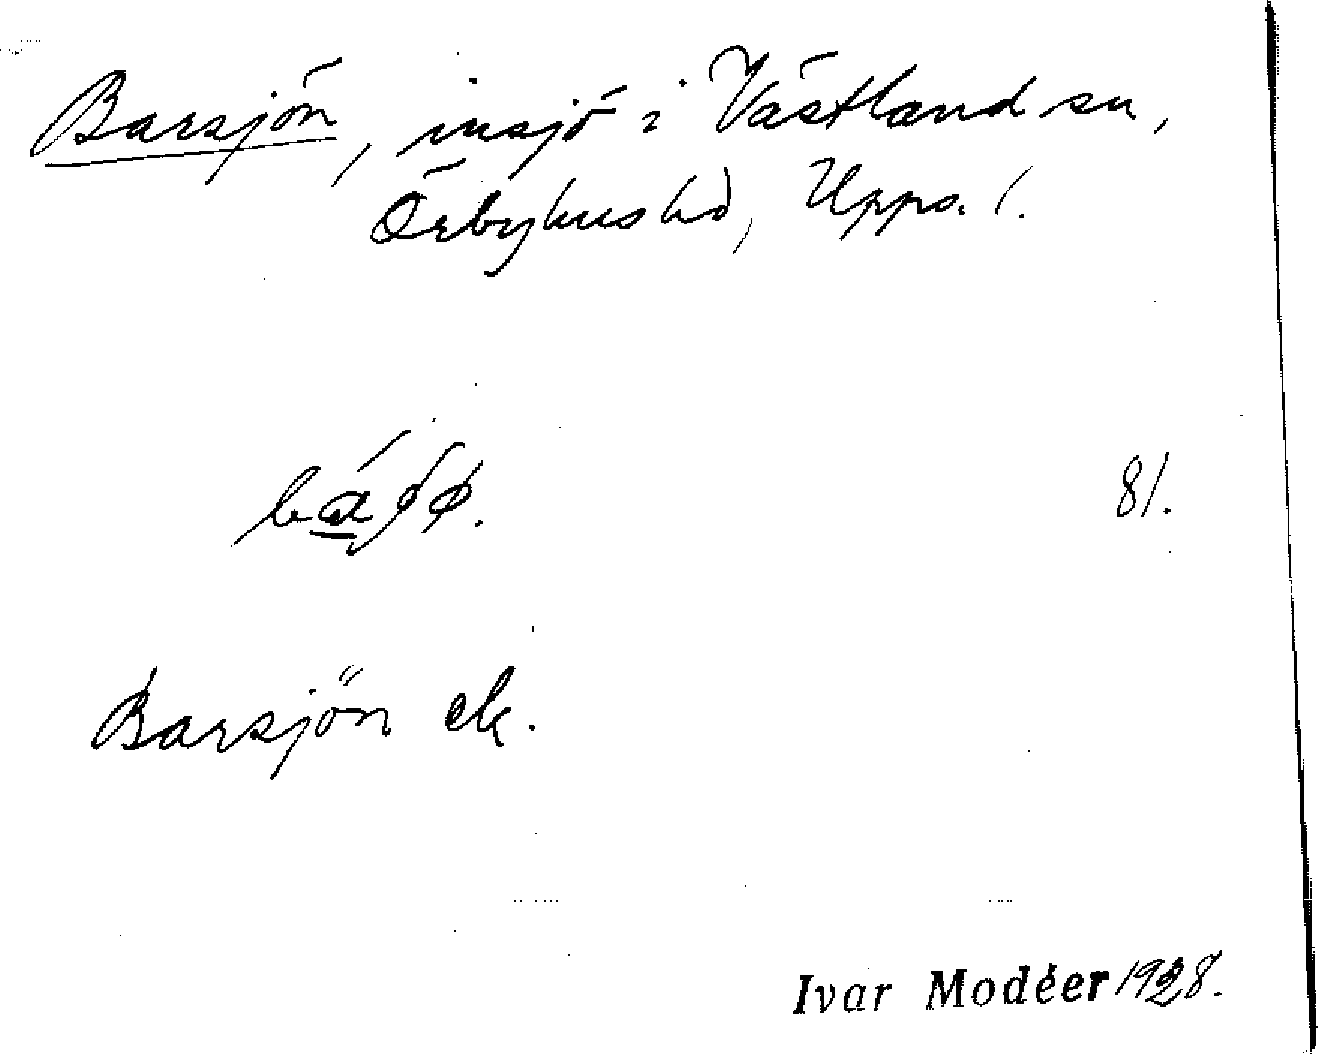 Barsjön, insjö i Västland sn,
Örbyhus hd, Upps. l.
81.
Barsjön ek.
Ivar Modéer 1928.